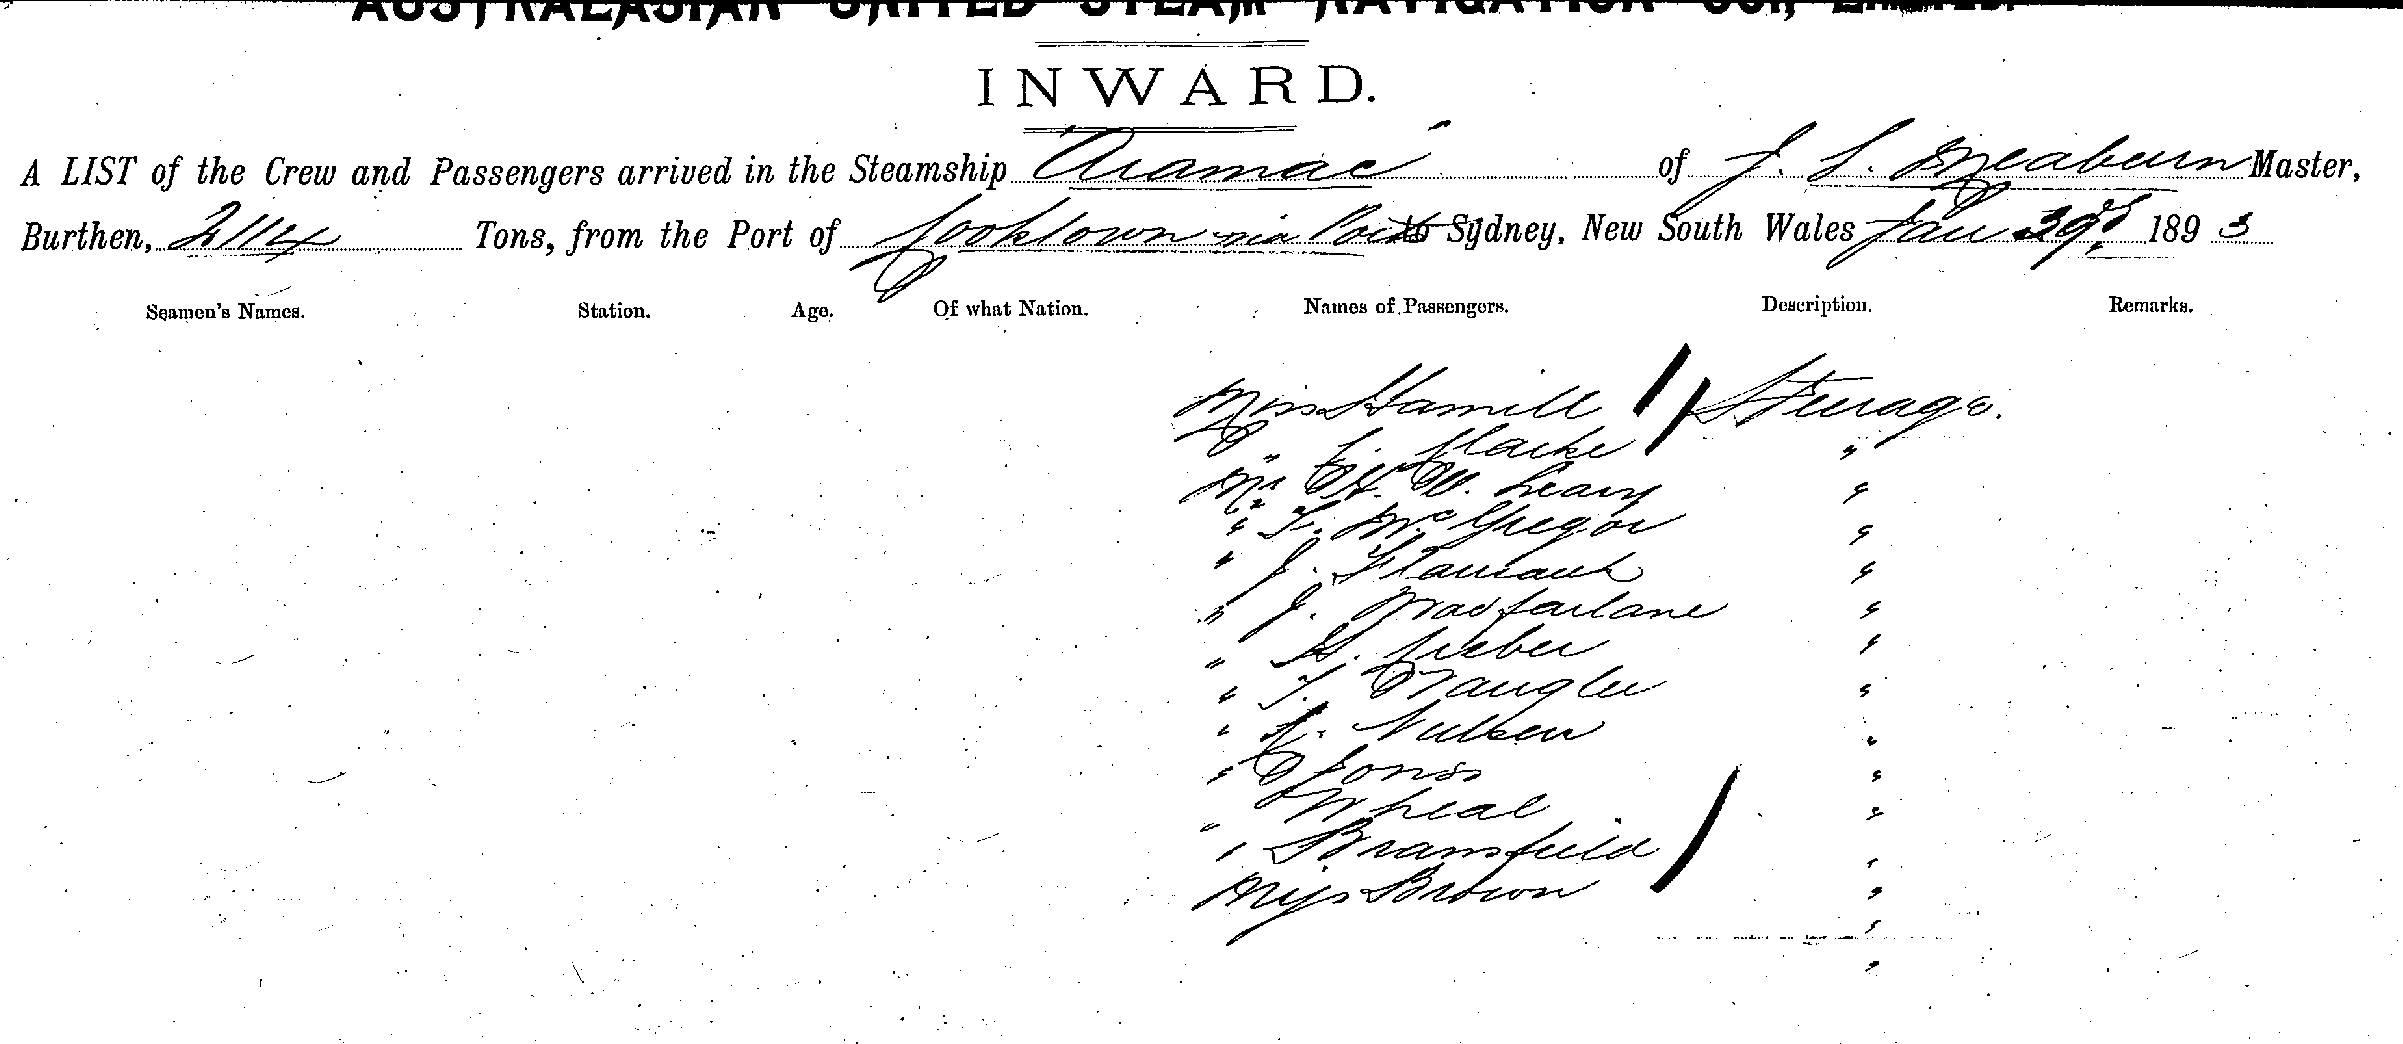 AUSTRALASIAN UNITED STEAM NAVIGATION CO., LIMITED.
INWARD.
A LIST of the Crew and Passengers arrived in the Steamship Aramac of J. S. Meaburn Master,
Burthen, 2114 Tons, from the Port of Cooktown via Ports Sydney, New South Wales Jan 29th 1893
Seamen's Names. Station. Age. Of what Nation. Names of Passengers. Description. Remarks.
Miss Hamill Steerage.
" C. Clarke "
Mr H. W. Leary "
" F. McGregor "
" J. "
" J. Macfarlane "
" H. "
" T. "
" "
" Jones "
" Wheal "
" Bransfield "
Miss Brown "
"
"